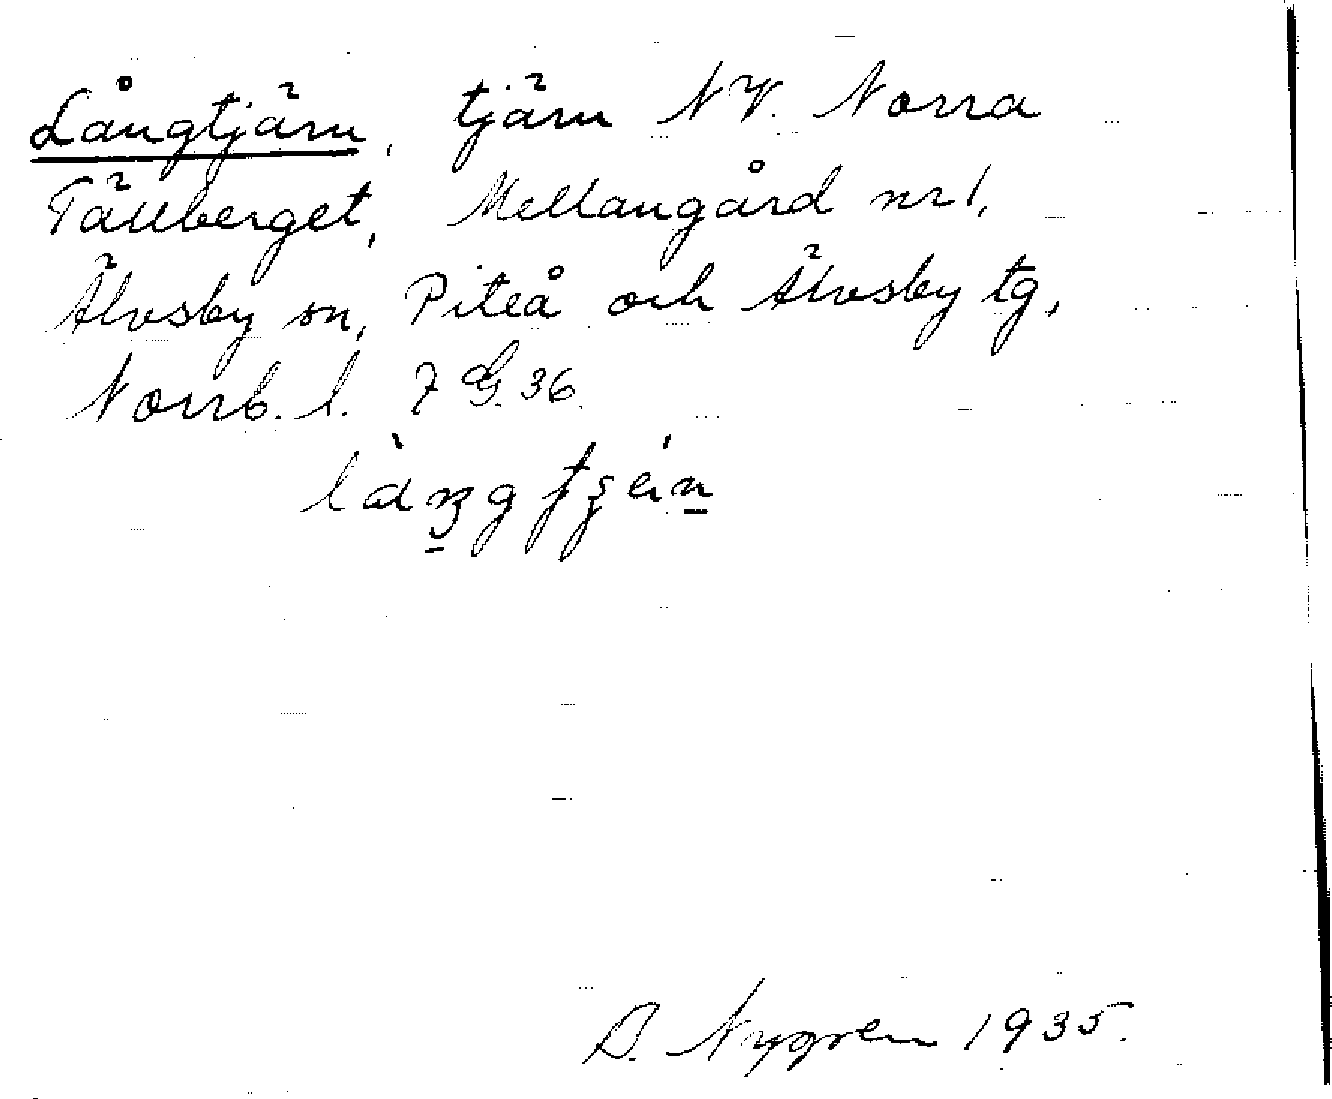 Långtjärn, tjärn NV. Norra
Tällberget, Mellangård nr 1,
Älvsby sn, Piteå och Älvsby tg,
Norrb. l. 7 G. 36.
Nygren 1935.